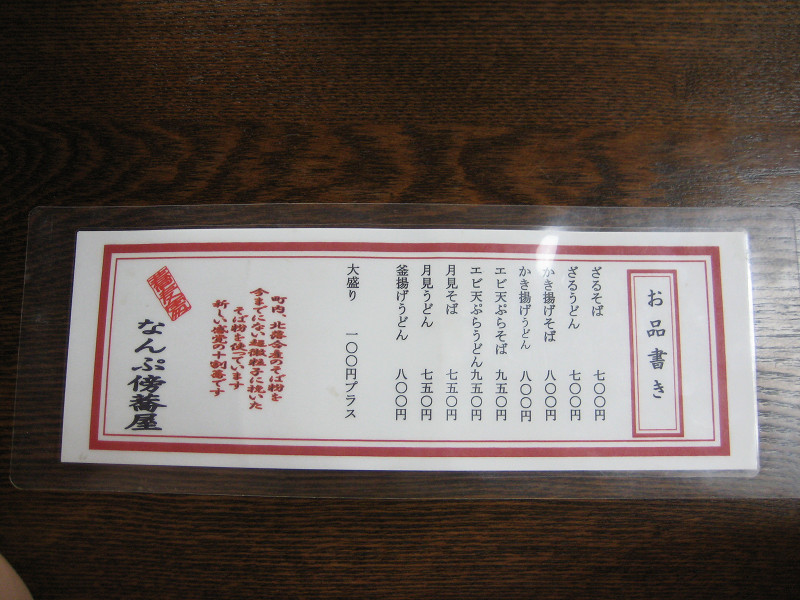 お品書き
ざるそば 七〇〇円
ざるうどん 七〇〇円
かき揚げそば 八〇〇円
かき揚げうどん 八〇〇円
エビ天ぷらそば 九五〇円
エビ天ぷらうどん 九五〇円
月見そば 七五〇円
月見うどん 七五〇円
釜揚げうどん 八〇〇円
大盛り 一〇〇円プラス
町内、北落合産のそば粉を
今までにない超微粒子に挽いた
そば粉を使っています
新しい感覚の十割蕎です
なんぷ傍蕎屋